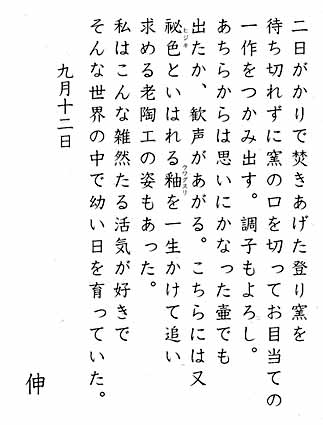 二日がかりで焚きあげた登り窯を
待ち切れずに窯の口を切ってお目当ての
一作をつかみ出す。調子もよろし。
あちらからは思いにかなった壷でも
出たか、歓声があがる。こちらには又
祕色といはれる釉を一生かけて追い
ヒジキ
ウワグスリ
求める老陶工の姿もあった。
私はこんな雑然たる活気が好きで
そんな世界の中で幼い日を育っていた。
九月十二日
伸